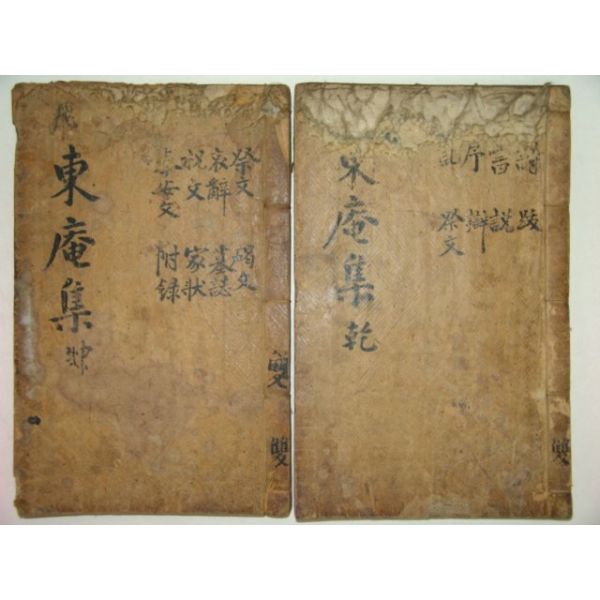 詩 跋
書 說
序 辨
記 祭文
東庵集 乾
雙
祭文 碣文
哀辭 墓誌
祝文 家狀
安文 附錄
東庵集
雙 雙